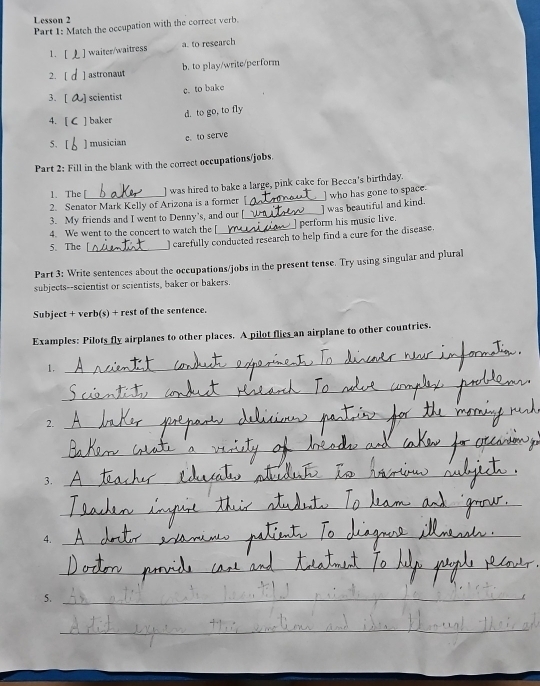 Lesson 2
Part 1: Match the occupation with the correct verb.
1. [ e ] waiter/waitress a. to research
2. [ d ] astronaut b. to play/write/perform
3. [ a ] scientist c. to bake
4. [ c ] baker d. to go, to fly
5. [ b ] musician e. to serve
Part 2: Fill in the blank with the correct occupations/jobs.
1. The [ baker ] was hired to bake a large, pink cake for Becca's birthday.
2. Senator Mark Kelly of Arizona is a former [ astronaut ] who has gone to space.
3. My friends and I went to Denny's, and our [ waitress ] was beautiful and kind.
4. We went to the concert to watch the [ musician ] perform his music live.
5. The [ scientist ] carefully conducted research to help find a cure for the disease.
Part 3: Write sentences about the occupations/jobs in the present tense. Try using singular and plural
subjects--scientist or scientists, baker or bakers.
Subject + verb(s) + rest of the sentence.
Examples: Pilots fly airplanes to other places. A pilot flies an airplane to other countries.
1. A scientist conducts experiments To discover new information.
Scientists conduct research To solve complex problems.
2. A baker prepares delicious pastries for the morning rush
Bakers create a variety of breads and cakes for occasions
3. A teacher educates students in various subjects.
Teachers inspire their students To learn and grow.
4. A doctor examines patients To diagnose illnesses.
Doctors provide care and treatment To help people recover.
5. An artist creates beautiful paintings for
Artists express their emotions and ideas through their